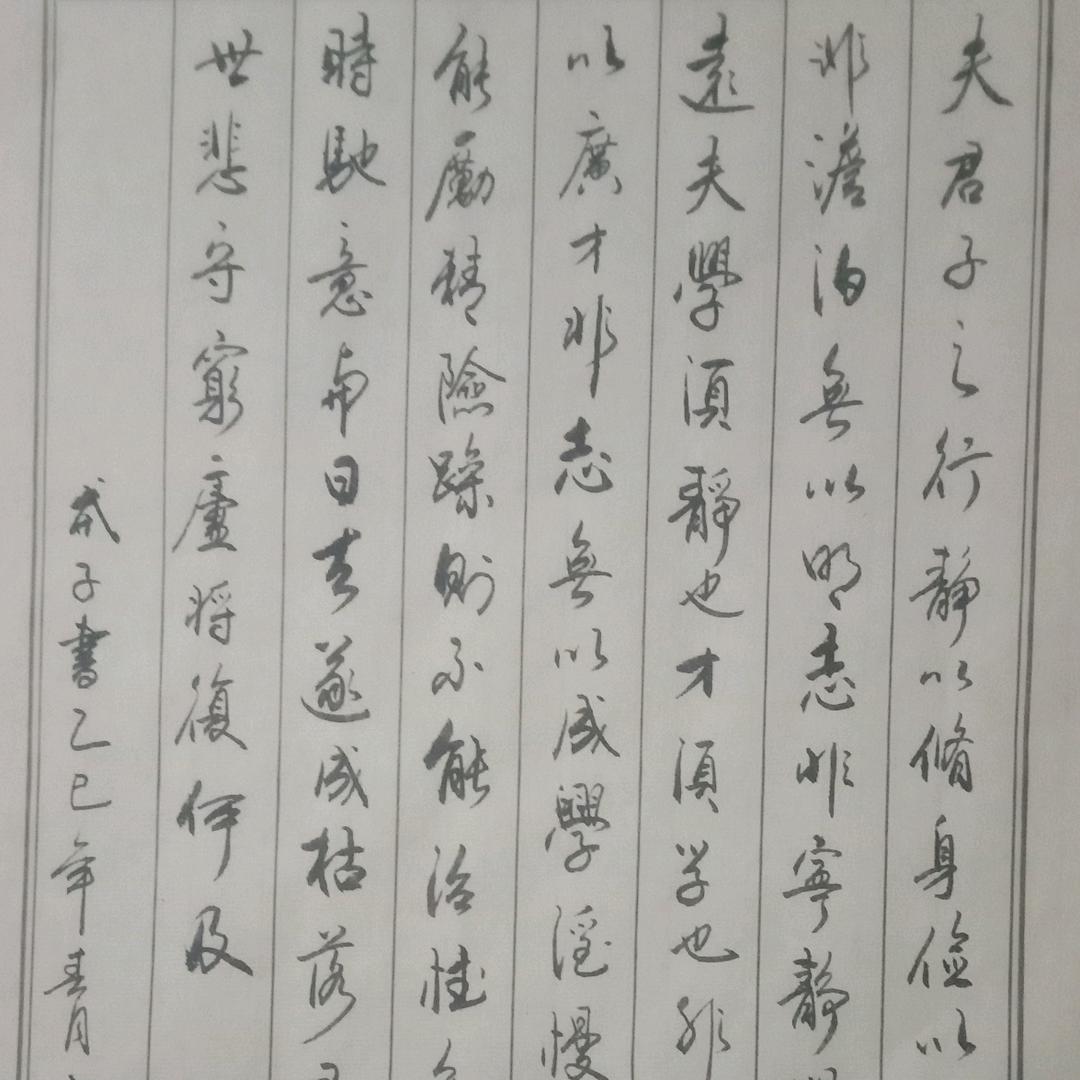 夫君子之行靜以脩身儉以
非澹泊無以明志非寧靜
遠夫學須靜也才須学也非
以廣才非志無以成學淫慢
能勵精險躁則不能治性
時馳意与日去遂成枯落
世悲守窮廬將復何及
子書乙巳年春月